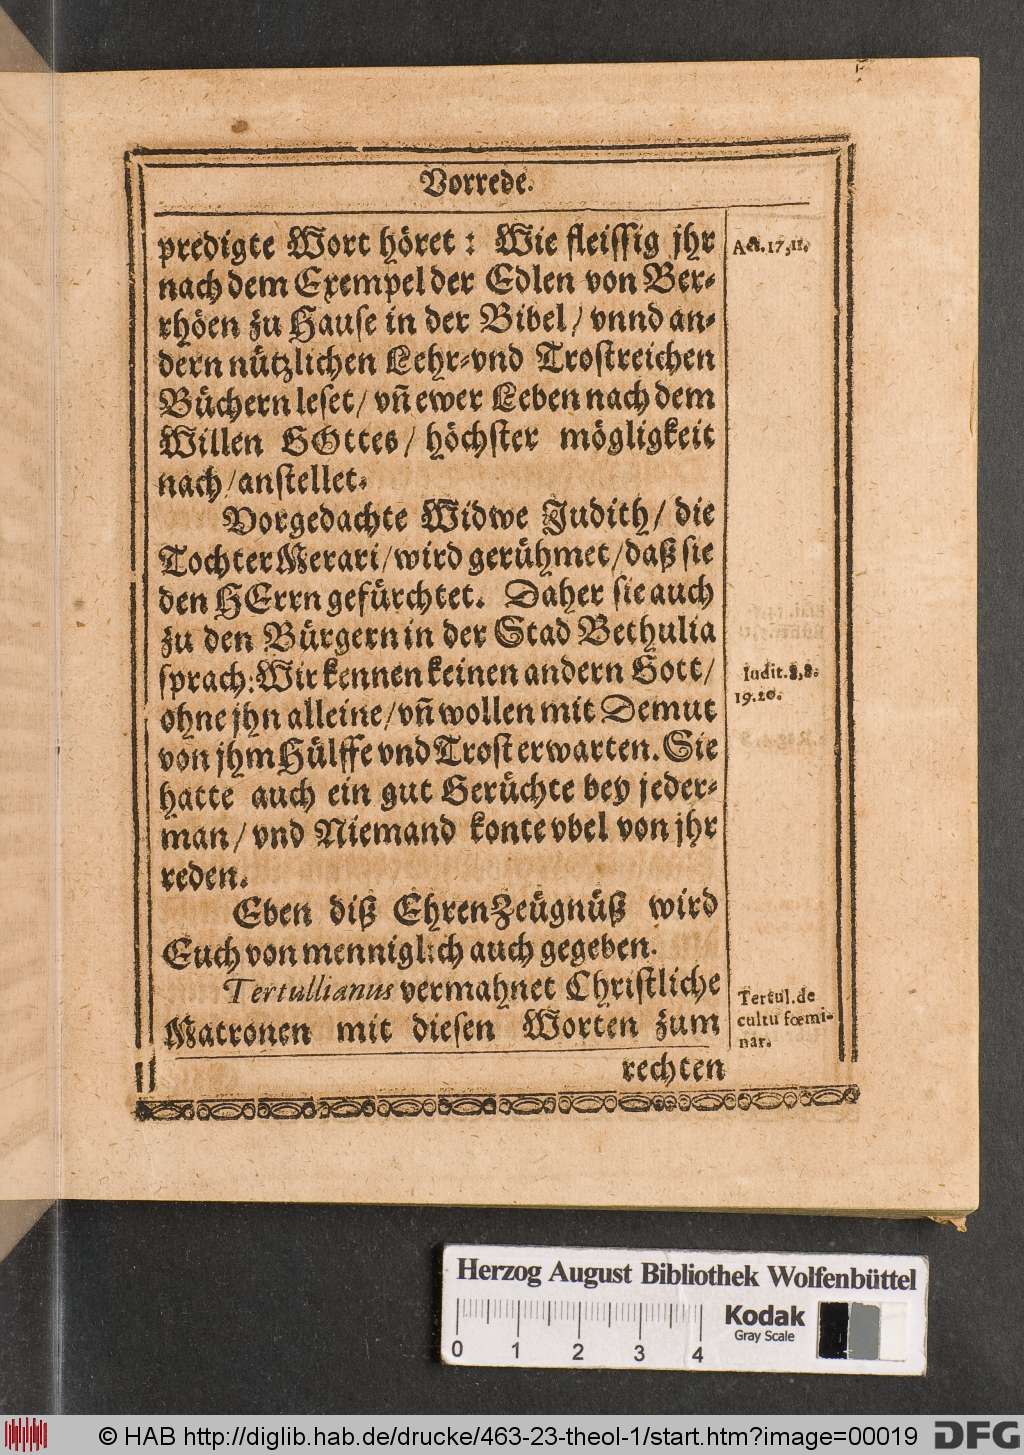 Vorrede.
predigte Wort höret: Wie fleissig jhr
nach dem Exempel der Edlen von Ber-
rhöen zu Hause in der Bibel/ vnnd an-
dern nützlichen Lehr-vnd Trostreichen
Büchern leset/ vñ ewer Leben nach dem
Willen GOttes/ höchster mögligkeit
nach/ anstellet.
Vorgedachte Widwe Judith/ die
Tochter Merari/ wird gerühmet/ daß sie
den HErrn gefürchtet. Daher sie auch
zu den Bürgern in der Stad Bethulia
sprach: Wir kennen keinen andern Gott/
ohne jhn alleine/ vñ wollen mit Demut
von jhm Hülffe vnd Trost erwarten. Sie
hatte auch ein gut Gerüchte bey jeder-
man/ vnd Niemand konte vbel von jhr
reden.
Eben diß EhrenZeügnüß wird
Euch von menniglich auch gegeben.
Tertullianus vermahnet Christliche
Matronen mit diesen Worten zum
rechten
Act.17,11.
Iudit.8,8.
19.20.
Tertul.de
cultu fœmi-
nar.
Herzog August Bibliothek Wolfenbüttel
Kodak
Gray Scale
0 1 2 3 4
© HAB http://diglib.hab.de/drucke/463-23-theol-1/start.htm?image=00019
DFG